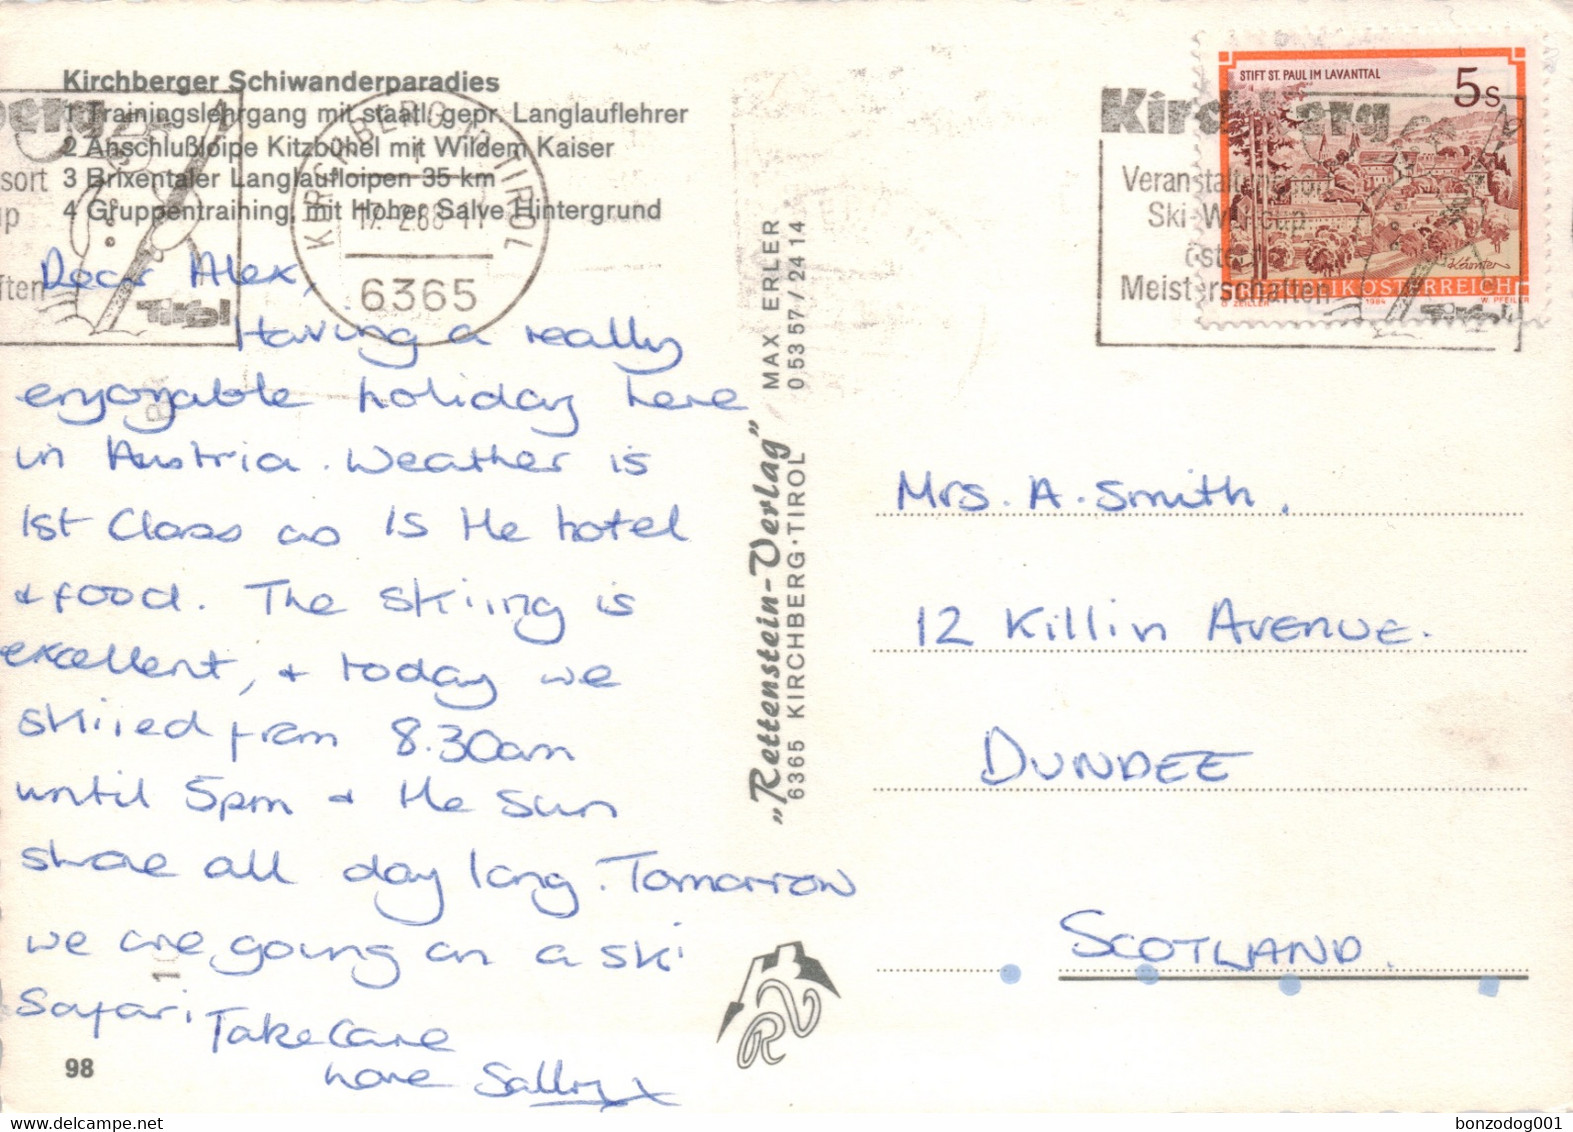 Kirchberger Schiwanderparadies
1 Trainingslehrgang mit staatl. gepr. Langlauflehrer
2 Anschlußloipe Kitzbühel mit Wildem Kaiser
3 Brixentaler Langlaufloipen 35 km
4 Gruppentraining, mit Hoher Salve Hintergrund
berg
sort
up
ften
Tirol
KIRCHBERG IN TIROL
17.-2.88-11
6365
Dear Alex,
Having a really
enjoyable holiday here
in Austria. Weather is
1st Class as is the hotel
& food. The skiing is
excellent, & today we
skiied from 8.30am
until 5pm & the sun
shone all day long. Tomorrow
we are going on a ski
Safari.
Take Care
Love Sally x
98
"Rettenstein-Verlag"
MAX ERLER
6365 KIRCHBERG·TIROL 05357/2414
RV
Kirchberg
Veranstaltungsort
Ski-Weltcup
österr.
Meisterschaften
Tirol
STIFT ST. PAUL IM LAVANTTAL
5s
Kärnten
REPUBLIK ÖSTERREICH
O. ZEILLER 1984 W. PFEILER
Mrs. A. Smith.
12 Killin Avenue.
DUNDEE
SCOTLAND.
delcampe.net
bonzodog001